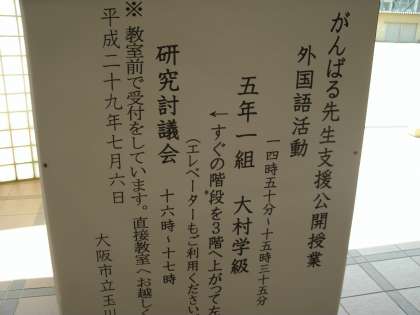 がんばる先生支援公開授業
外国語活動
一四時五十分~十五時三十五分
五年一組 大村学級
←すぐの階段を3階へ上がって左
(エレベーターもご利用ください
研究討議会 十六時~十七時
※教室前で受付をしています。直接教室へお越しく
平成二十九年七月六日
大阪市立玉川